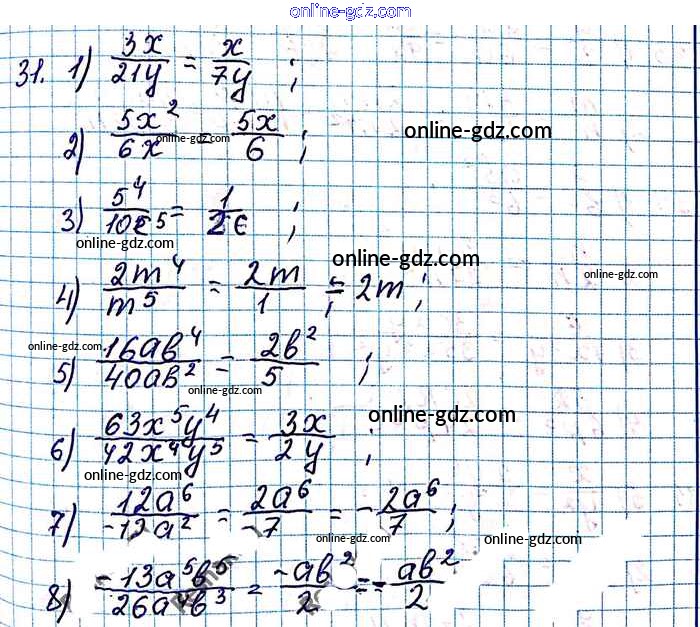 online-gdz.com
31. 1) 3x/21y = x/7y ;
2) 5x²/6x = 5x/6 ;
online-gdz.com
online-gdz.com
3) 5⁴/10c⁵ = 1/2c ;
online-gdz.com
online-gdz.com
online-gdz.com
4) 2m⁴/m⁵ = 2m/1 = 2m ;
online-gdz.com
5) 16ab⁴/40ab² = 2b²/5 ;
online-gdz.com
online-gdz.com
6) 63x⁵y⁴/42x⁴y⁵ = 3x/2y ;
online-gdz.com
7) 12a⁶/-12a² = 2a⁶/-7 = -2a⁶/7 ;
online-gdz.com
online-gdz.com
8) -13a⁵b⁵/26a⁴b³ = -ab²/2 = -ab²/2